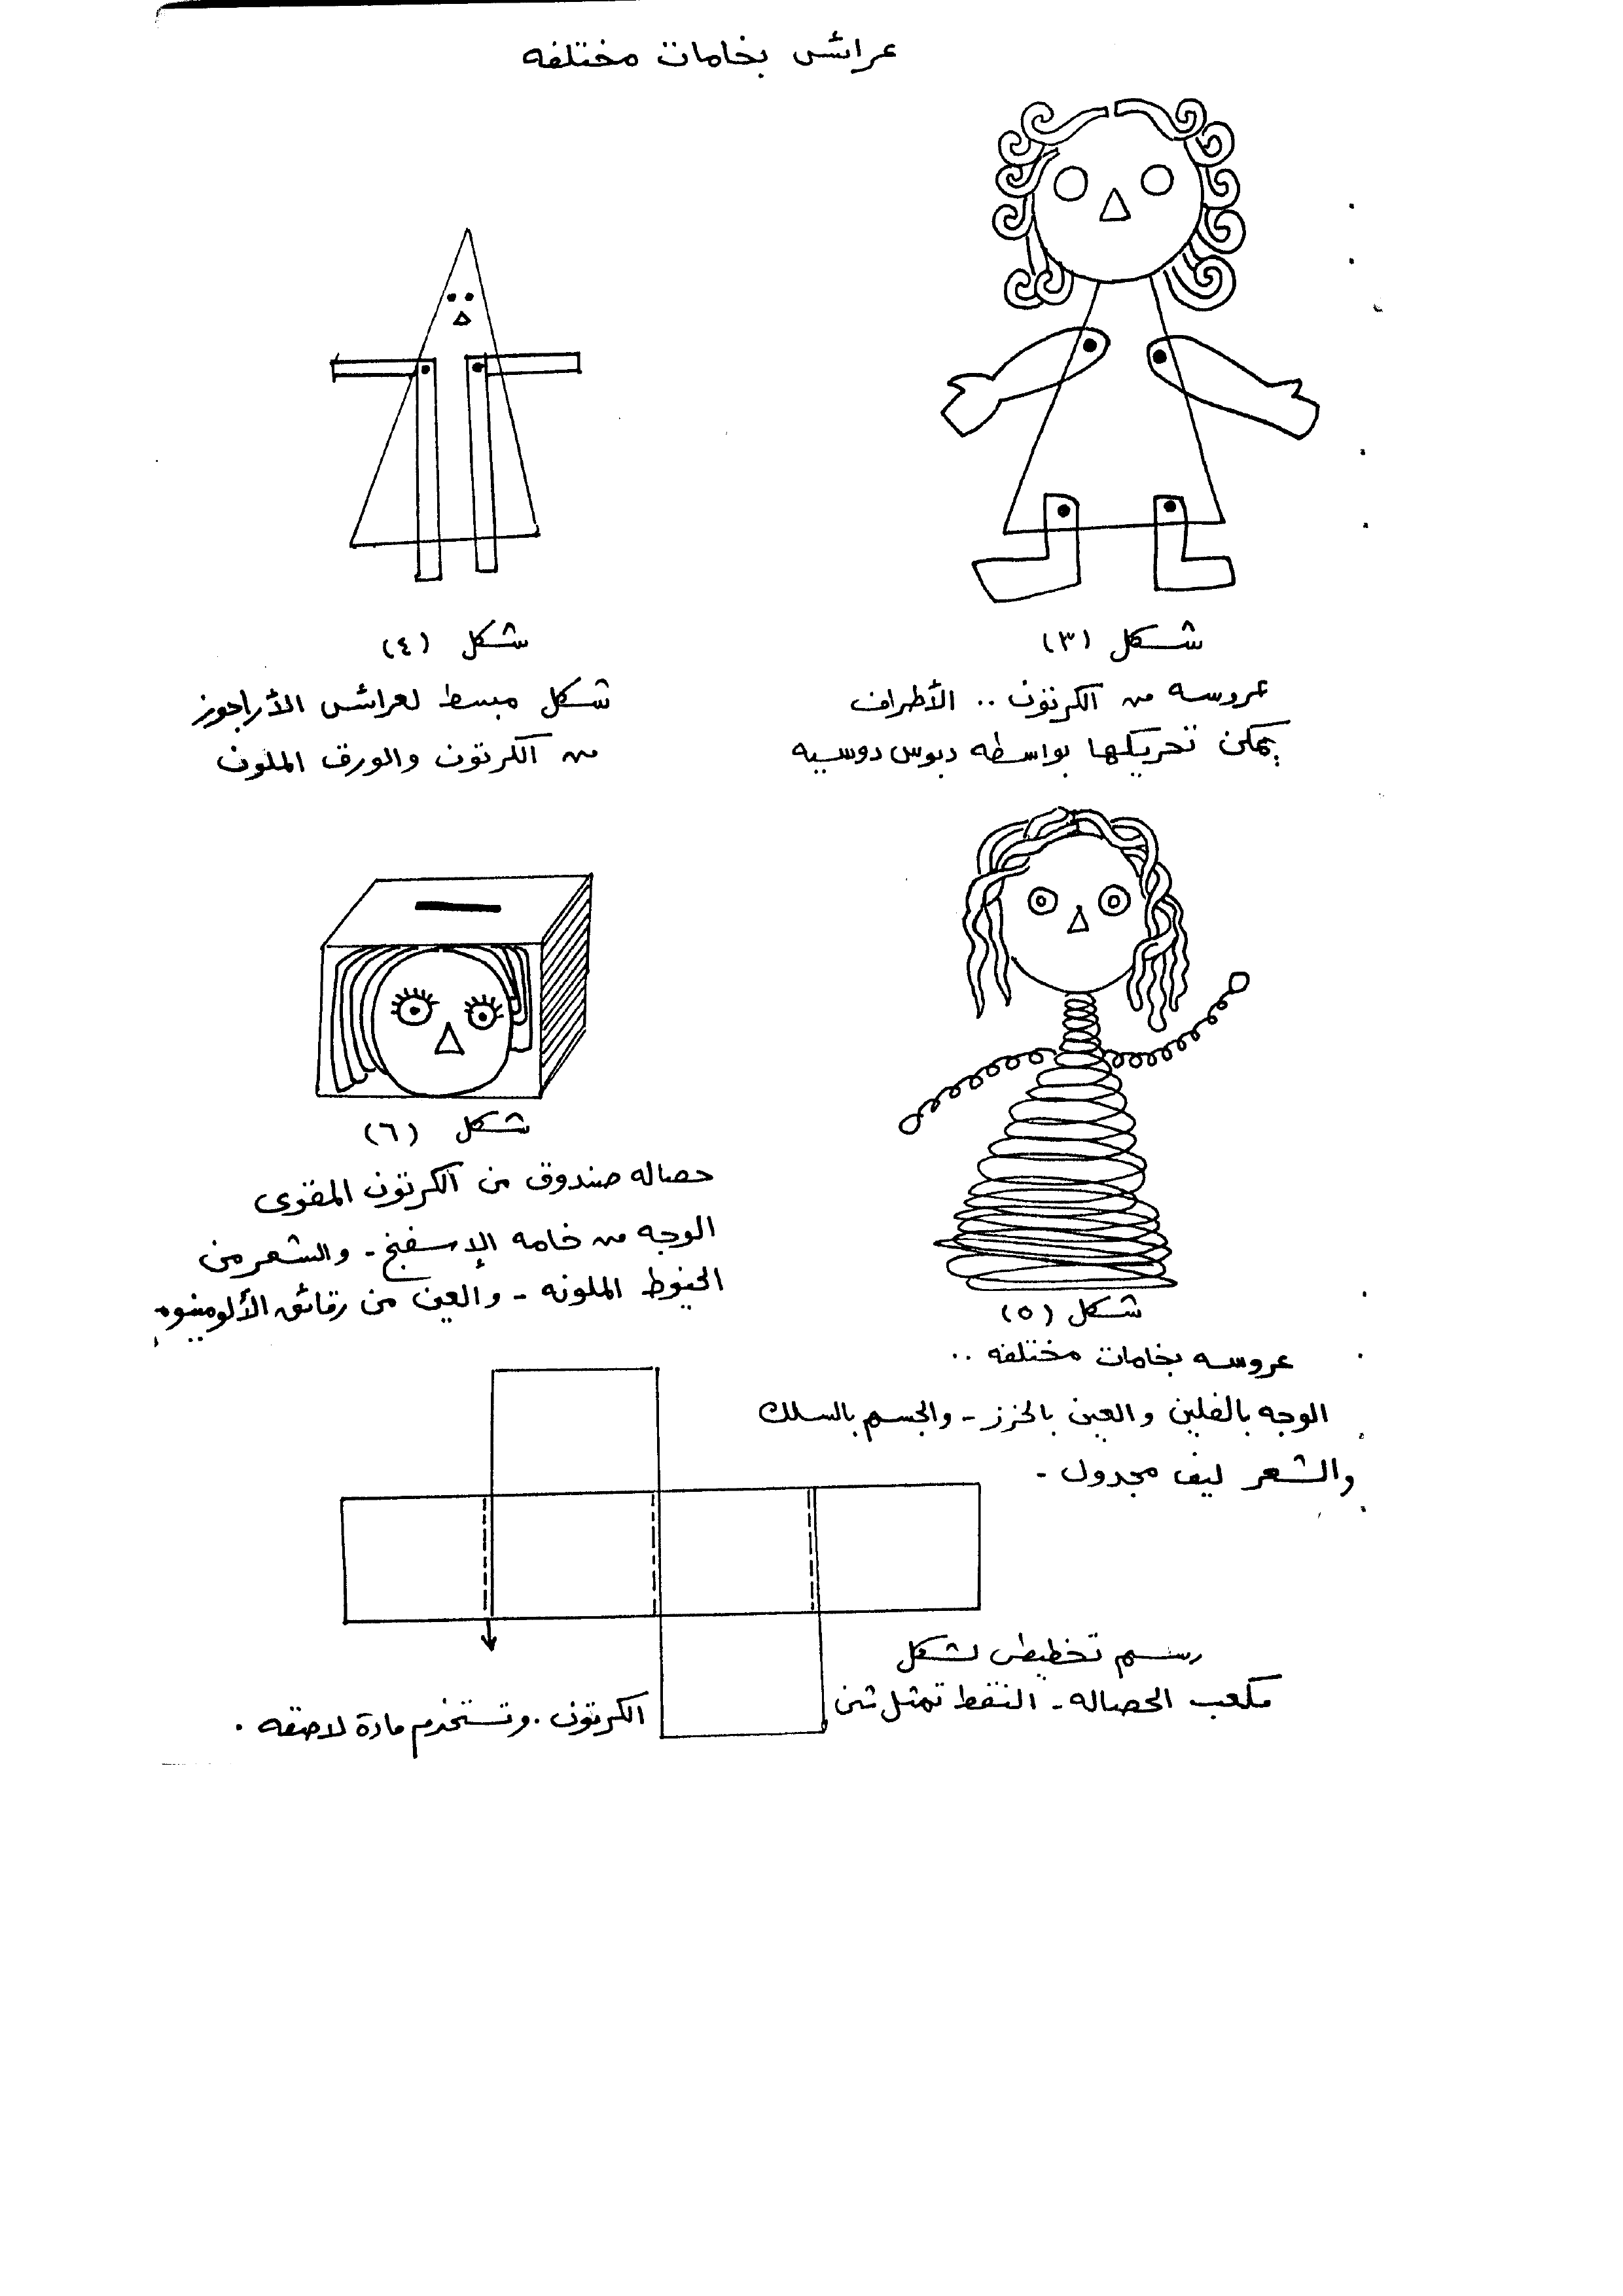 عرائس بخامات مختلفه
شكل (٣)
عروسه من الكرتون .. الأطراف
يمكن تحريكها بواسطه دبوس دوسيه
شكل (٤)
شكل مبسط لعرائس الأراجوز
من الكرتون والورق الملون
شكل (٥)
عروسه بخامات مختلفه ..
الوجه بالفلين والعين بالخرز - والجسم بالسلك
والشعر ليف مجدول -
شكل (٦)
حصاله صندوق من الكرتون المقوى
الوجه من خامه الإسفنج - والشعر من
الخيوط الملونه - والعين من رقائق الألومنيوم
رسم تخطيطى لشكل
مكعب الحصاله - النقط تمثل ثنى
الكرتون . وتستخدم مادة لاصقه .